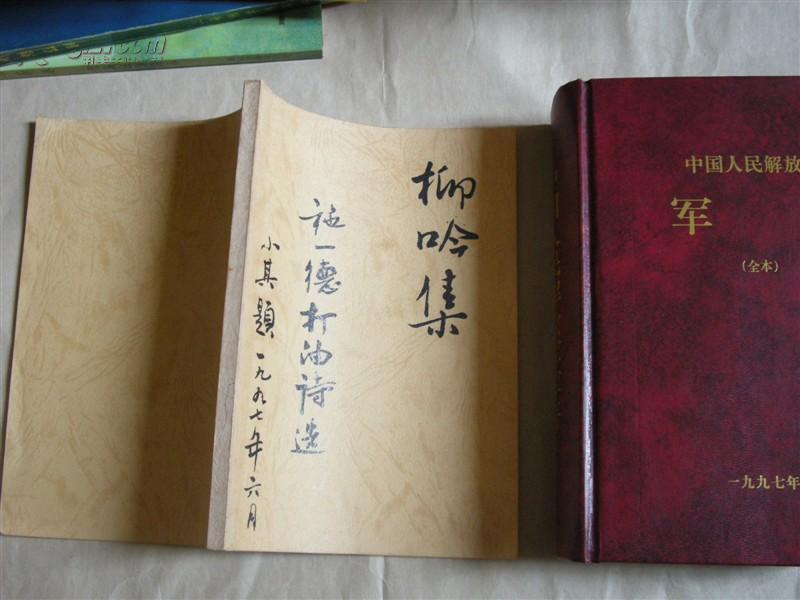 柳吟集
一德打油诗选
小其题 一九九七年六月
中国人民解放
军
(全本)
一九九七年